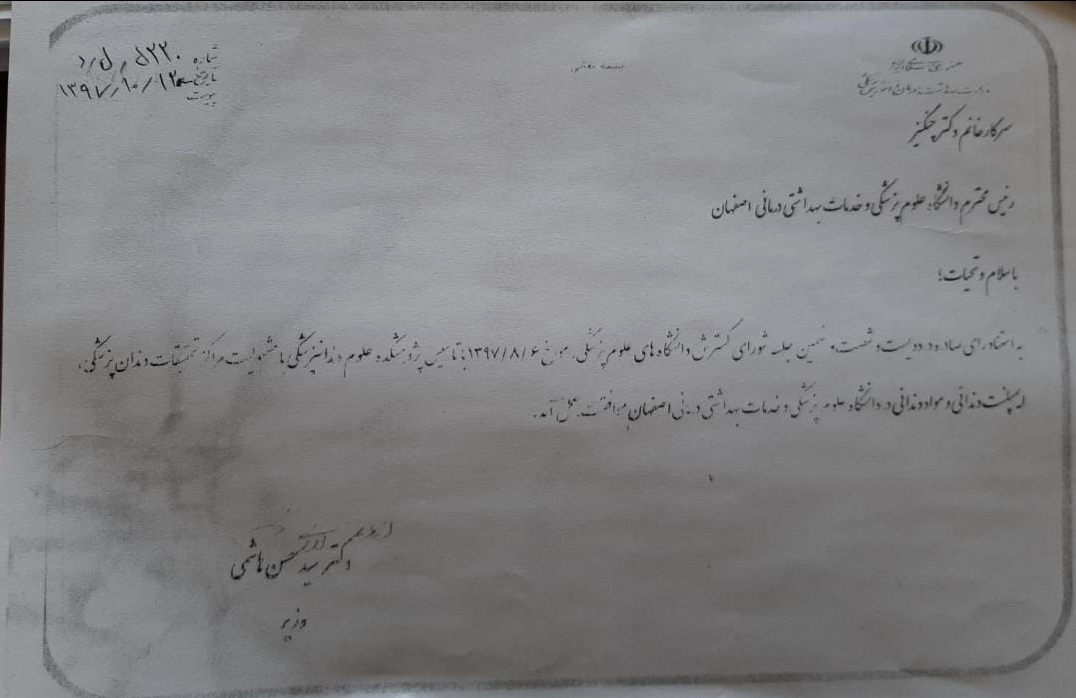 بسمه تعالی
جمهوری اسلامی ایران
وزارت بهداشت، درمان و آموزش پزشکی
شماره ۵۲۲۰
تاریخ ۱۳۹۷/۱۰/۱۲
پیوست
سرکار خانم دکتر چنگیز
رئیس محترم دانشگاه علوم پزشکی و خدمات بهداشتی درمانی اصفهان
با سلام و تحیات؛
به استناد رای صادره در دویست و شصت و نهمین جلسه شورای گسترش دانشگاه های علوم پزشکی، مورخ ۱۳۹۷/۸/۶ با تاسیس پژوهشکده علوم دندانپزشکی با مشمولیت مراکز تحقیقات دندان پزشکی،
ایمپلنت دندانی و مواد دندانی در دانشگاه علوم پزشکی و خدمات بهداشتی درمانی اصفهان موافقت بعمل آمد.
دکتر سید حسن هاشمی
وزیر